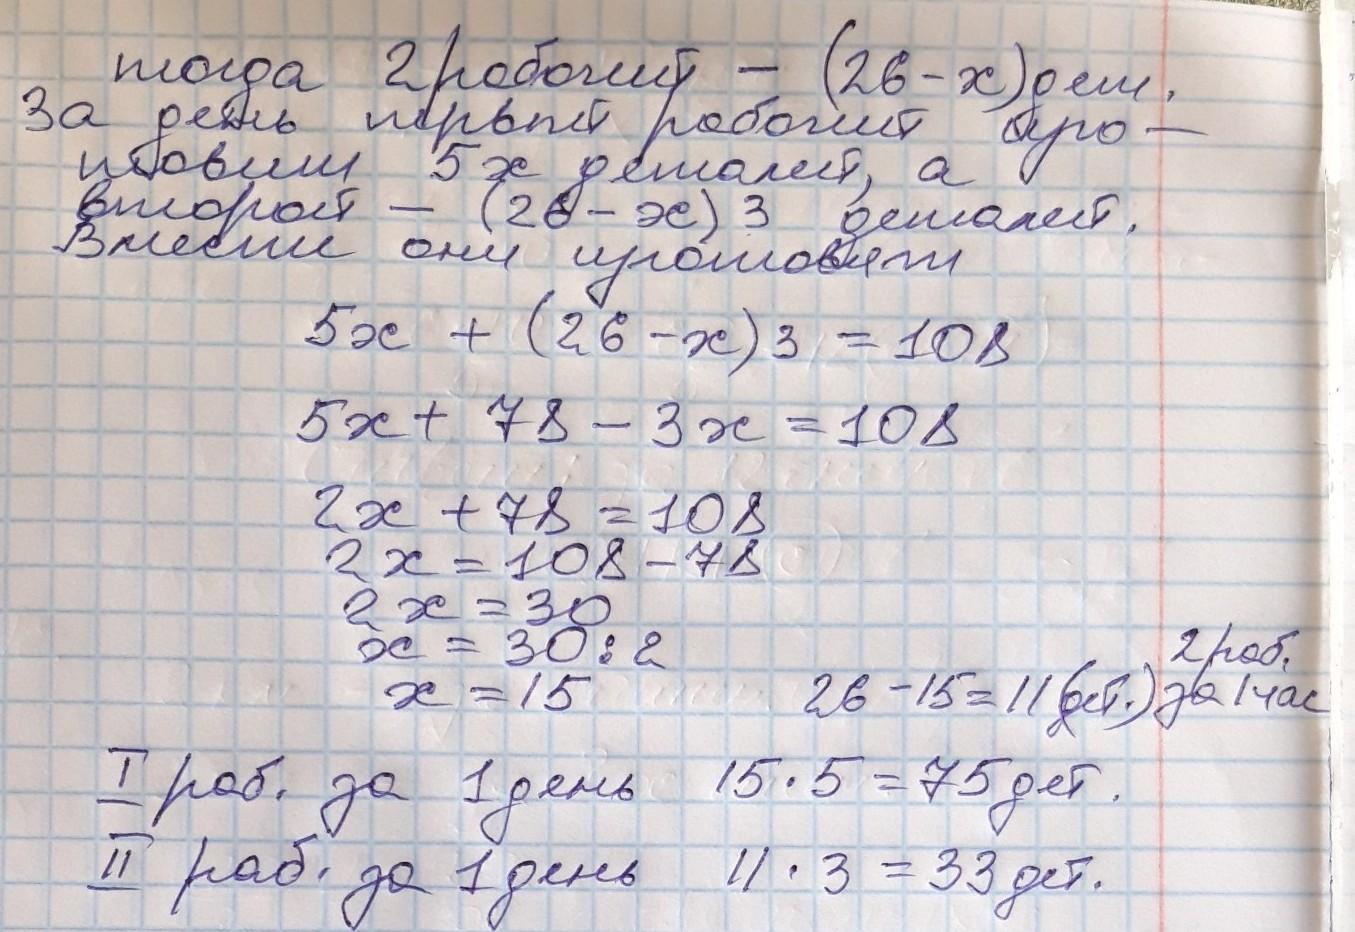 тогда 2 рабочий - (26 - x) дет.
За день первый рабочий изго-
товит 5x деталей, а
второй - (26 - x) 3 деталей.
Вместе они изготовят
5x + (26 - x) 3 = 108
5x + 78 - 3x = 108
2x + 78 = 108
2x = 108 - 78
2x = 30
x = 30 : 2
x = 15
26 - 15 = 11 (дет.) 2 раб. за 1 час
I раб. за 1 день 15 · 5 = 75 дет.
II раб. за 1 день 11 · 3 = 33 дет.